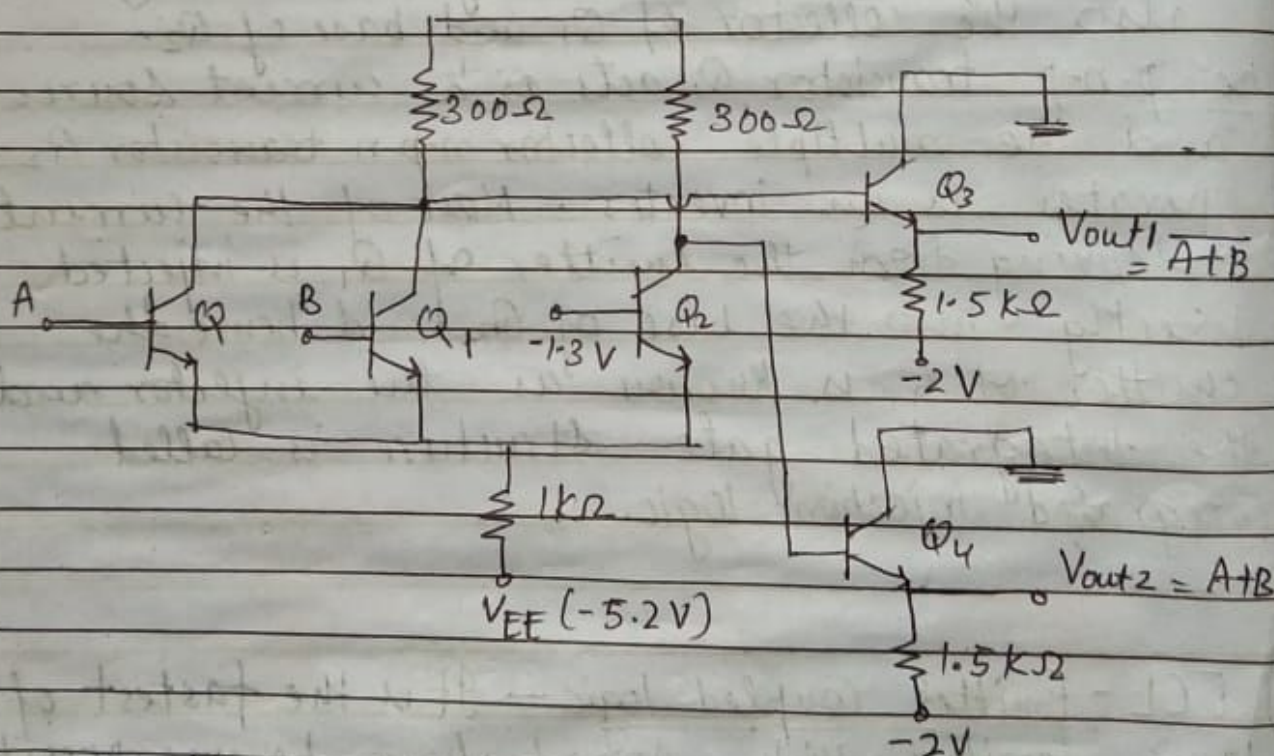 300Ω
300Ω
Q3
Vout1
= \overline{A+B}
1.5 kΩ
-2 V
A
Q
B
Q1
-1.3 V
Q2
1kΩ
VEE (-5.2V)
Q4
Vout2 = A+B
1.5 kΩ
-2V